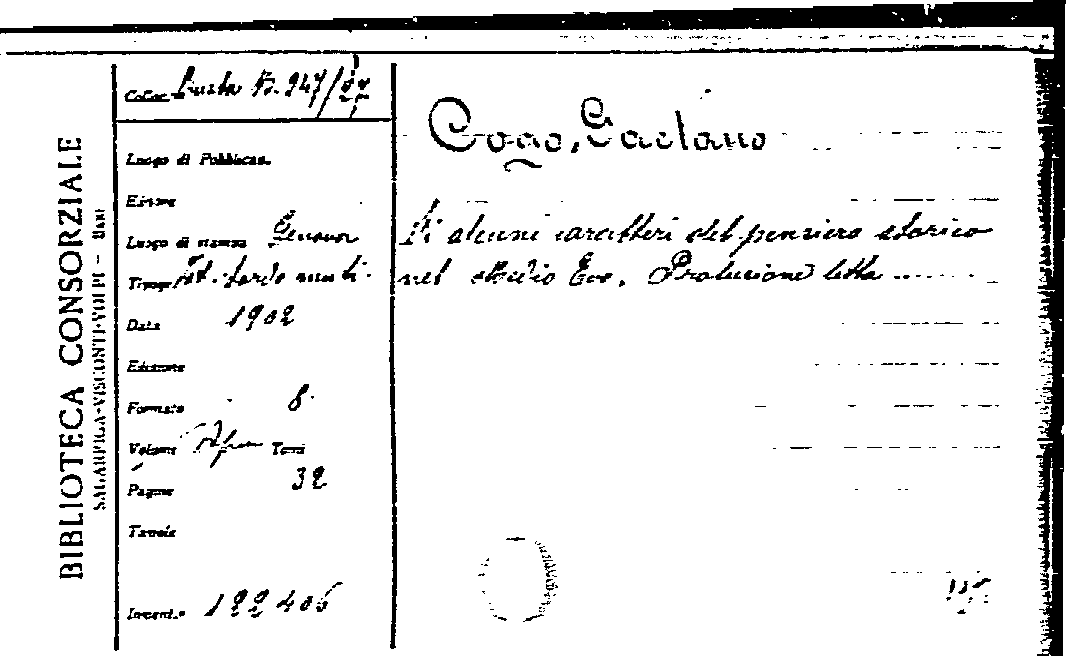 BIBLIOTECA CONSORZIALE
SAGARRIGA-VISCONTI-VOLPI - Bari
Colloc. Busta B. 247/27
Luogo di Pubblicaz.
Editore
Luogo di stampa Genova
Tipogr. sordo muti
Data 1902
Edizione
Formato 8.
Volumi Tomi
Pagine 32
Tavole
Invent.o 122406
Cogo, Gaetano
Di alcuni caratteri del pensiero storico
nel Medio Evo. Prolusione letta